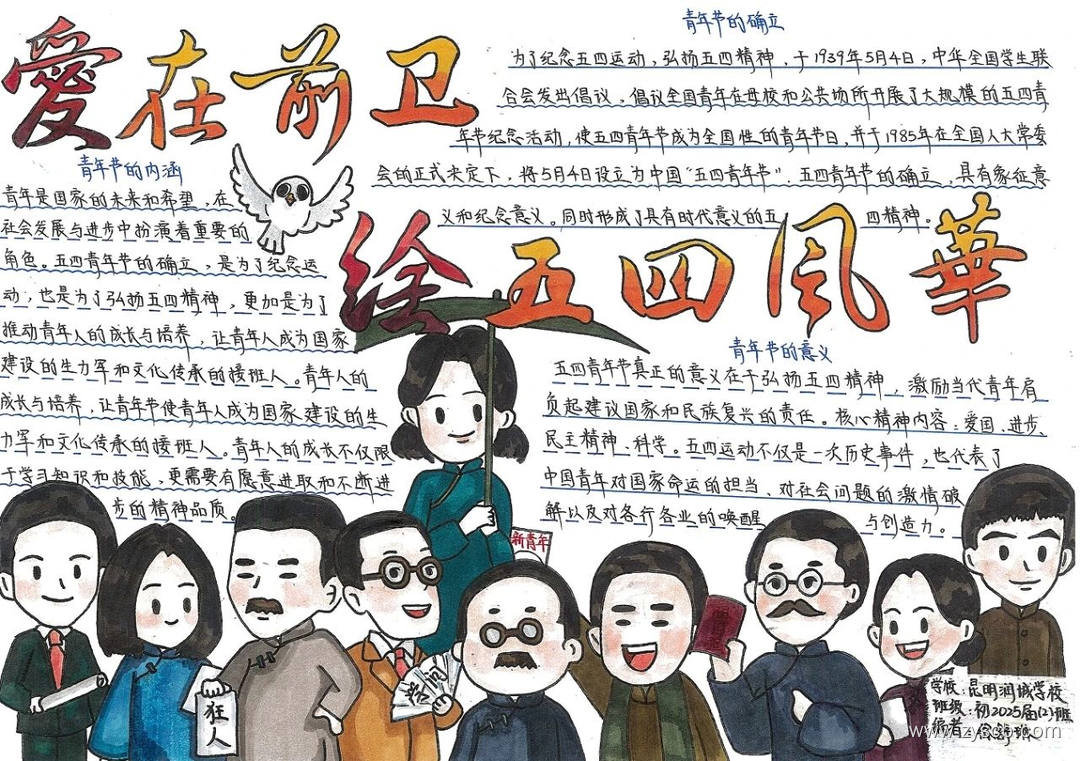 愛在前卫
绘五四风華
青年节的确立
为了纪念五四运动，弘扬五四精神，于1939年5月4日，中华全国学生联
合会发出倡议，倡议全国青年在母校和公共场所开展了大规模的五四青
年节纪念活动，使五四青年节成为全国性的青年节日，并于1985年在全国人大常委
会的正式决定下，将5月4日设立为中国"五四青年节"．五四青年节的确立，具有象征意
义和纪念意义。同时形成了具有时代意义的五四精神。
青年节的内涵
青年是国家的未来和希望，在
社会发展与进步中扮演着重要的
角色。五四青年节的确立，是为了纪念运
动，也是为了弘扬五四精神，更加是为了
推动青年人的成长与培养，让青年人成为国家
建设的生力军和文化传承的接班人。青年人的
成长与培养，让青年节使青年人成为国家建设的生
力军和文化传承的接班人。青年人的成长不仅限
于学习知识和技能，更需要有愿意进取和不断进
步的精神品质。
青年节的意义
五四青年节真正的意义在于弘扬五四精神，激励当代青年肩
负起建议国家和民族复兴的责任。核心精神内容：爱国、进步、
民主精神、科学。五四运动不仅是一次历史事件，也代表了
中国青年对国家命运的担当、对社会问题的激情破
解以及对各行各业的唤醒与创造力。
新青年
狂人
学问
学校：昆明润城学校
班级：初2025届(2)班
编者